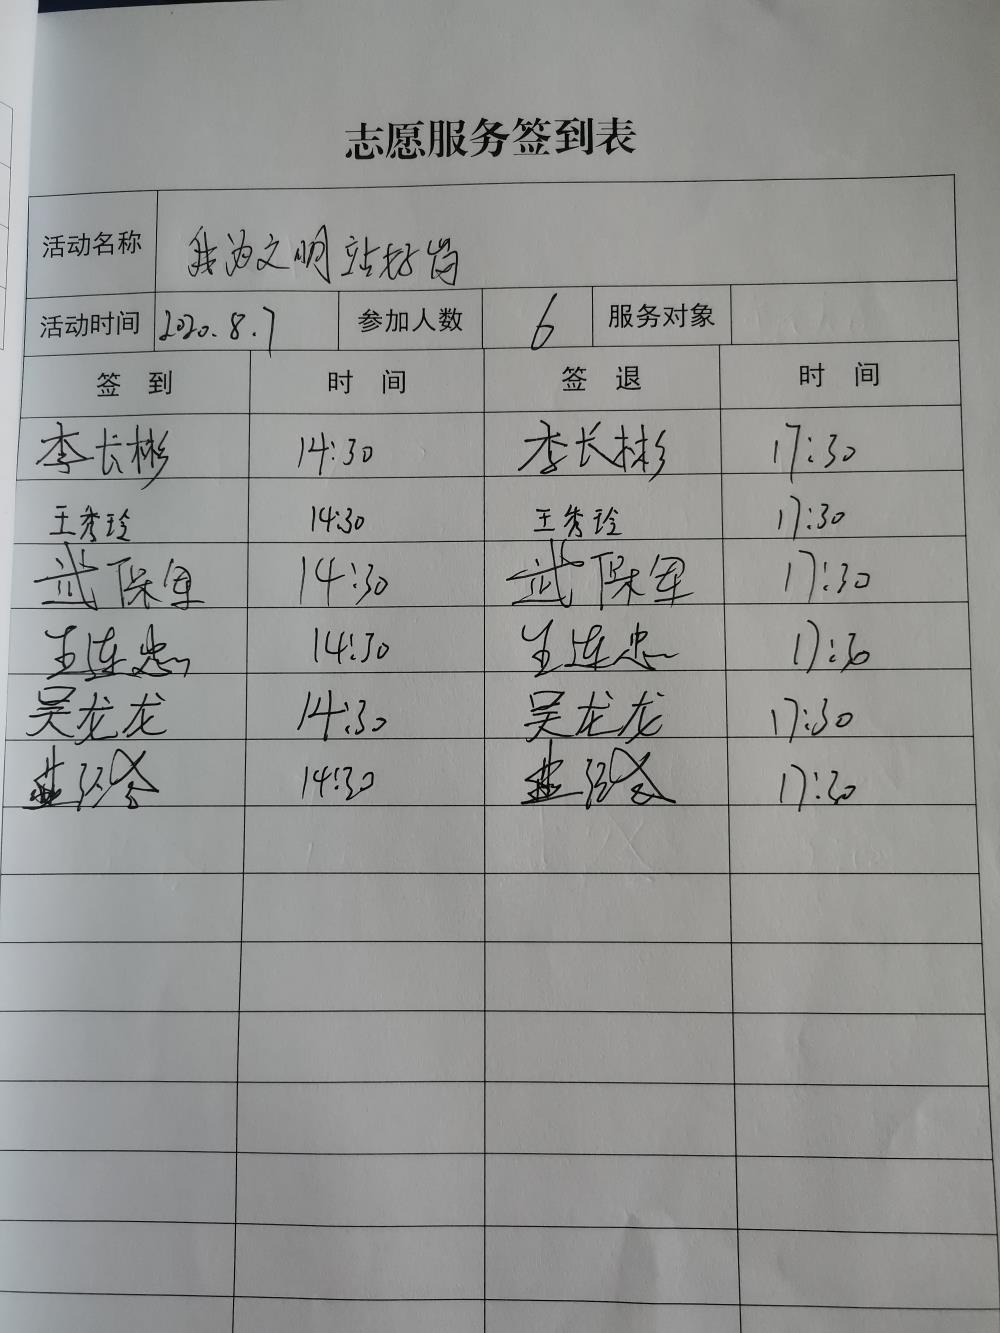 志愿服务签到表
活动名称 我为文明站好岗
活动时间 2020.8.7 参加人数 6 服务对象
签到 时间 签退 时间
李长彬 14:30 李长彬 17:30
王秀玲 14:30 王秀玲 17:30
武保军 14:30 武保军 17:30
王连忠 14:30 王连忠 17:30
吴龙龙 14:30 吴龙龙 17:30
14:30 17:30